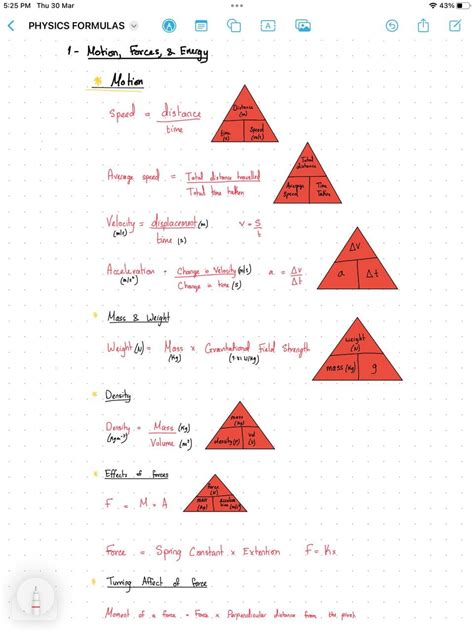 5:25 PM Thu 30 Mar
43%
PHYSICS FORMULAS
A
1- Motion, Forces, & Energy
* Motion
Speed = distance
time
Distance (m)
time (s)
Speed (m/s)
Average speed = Total distance travelled
Total time taken
Total distance
Average Speed
Time Taken
Velocity = displacement (m)
(m/s)
time (s)
v = s
t
Acceleration = Change in Velocity (m/s)
(m/s²)
Change in time (s)
a = Δv
Δt
Δv
a
Δt
* Mass & Weight
Weight (N) = Mass x Gravitational Field Strength
(Kg)
weight (N)
mass (kg)
g
* Density
Density = Mass (Kg)
(Kgm⁻³)
Volume (m³)
mass (Kg)
density (ρ)
vol (V)
* Effects of forces
F = M x A
force (N)
mass (Kg)
Force = Spring Constant x Extention
F = Kx
* Turning Affect of force
Moment of a force = Force x Perpendicular distance from the pivot